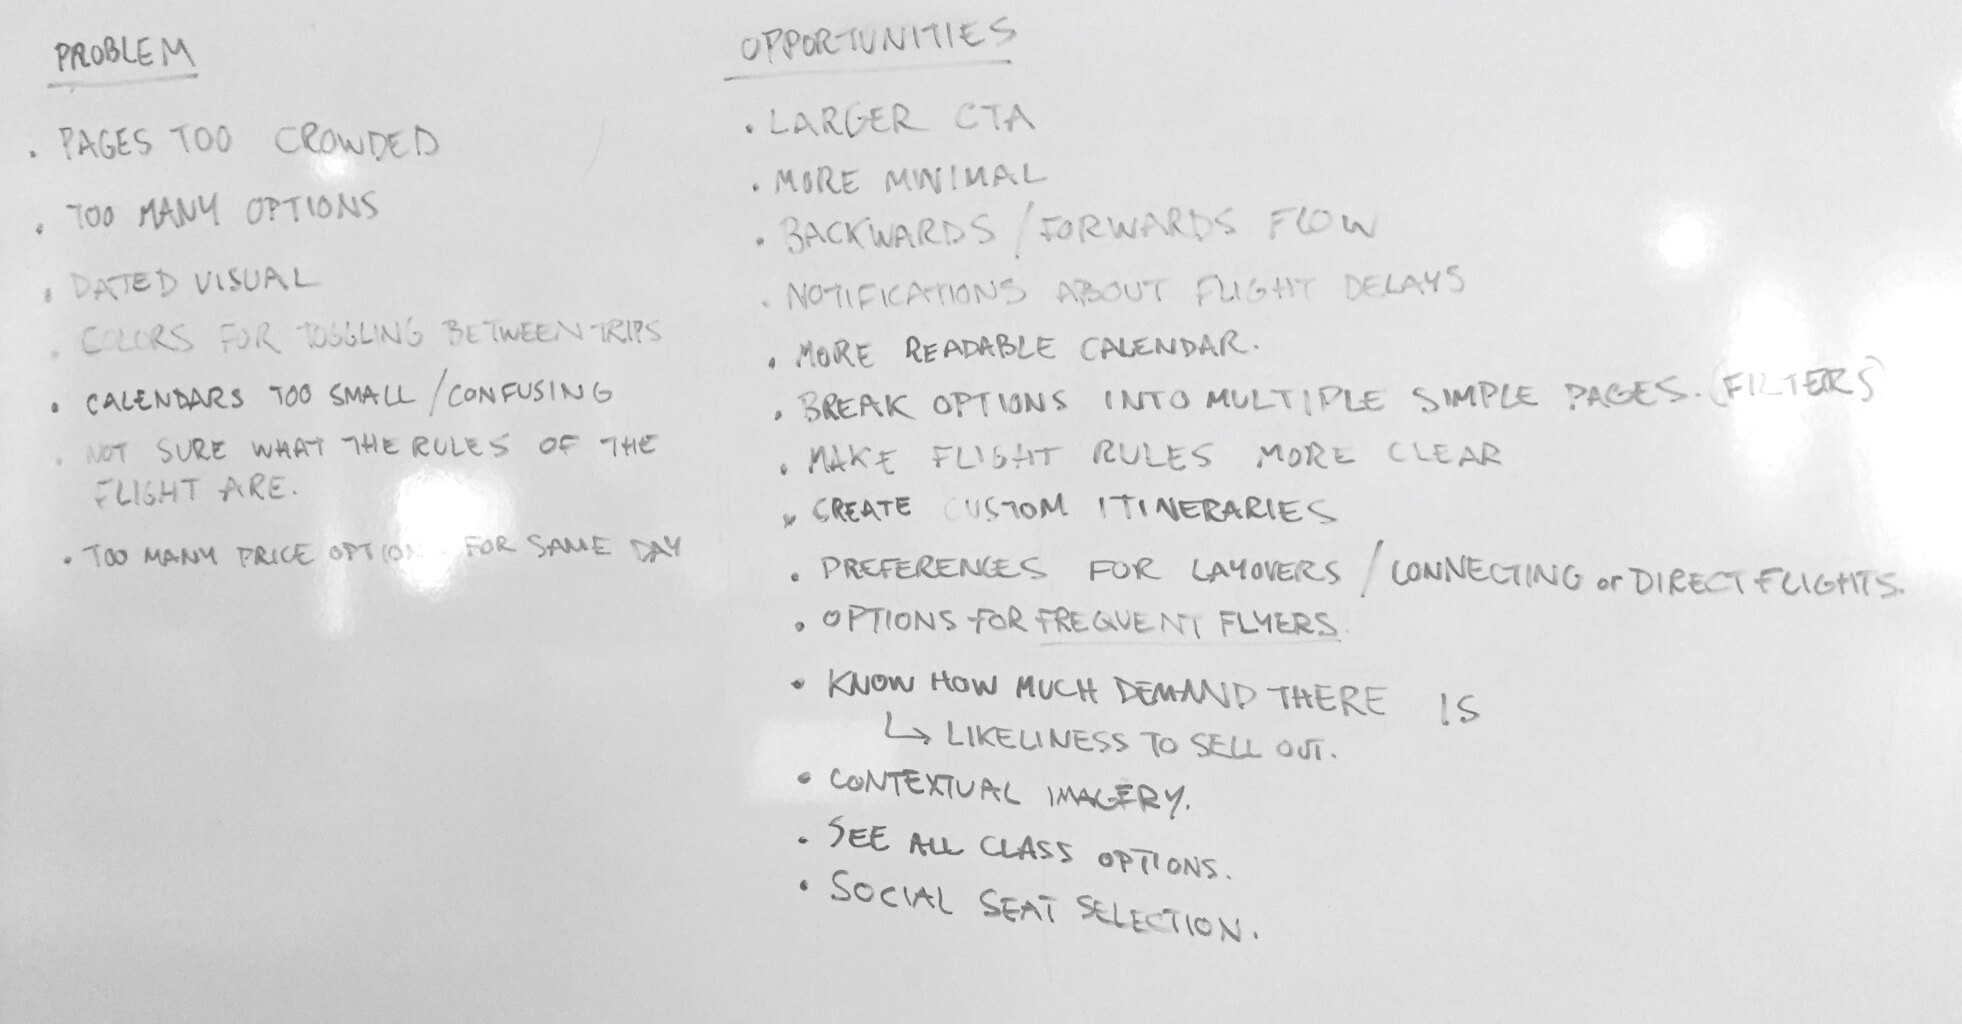 PROBLEM
• PAGES TOO CROWDED
• TOO MANY OPTIONS
• DATED VISUAL
• COLORS FOR TOGGLING BETWEEN TRIPS
• CALENDARS TOO SMALL / CONFUSING
• NOT SURE WHAT THE RULES OF THE
FLIGHT ARE.
• TOO MANY PRICE OPTION FOR SAME DAY
OPPORTUNITIES
• LARGER CTA
• MORE MINIMAL
• BACKWARDS / FORWARDS FLOW
• NOTIFICATIONS ABOUT FLIGHT DELAYS
• MORE READABLE CALENDAR.
• BREAK OPTIONS INTO MULTIPLE SIMPLE PAGES. (FILTERS)
• MAKE FLIGHT RULES MORE CLEAR
• CREATE CUSTOM ITINERARIES
• PREFERENCES FOR LAYOVERS / CONNECTING or DIRECT FLIGHTS.
• OPTIONS FOR FREQUENT FLYERS.
• KNOW HOW MUCH DEMAND THERE IS
↳ LIKELINESS TO SELL OUT.
• CONTEXTUAL IMAGERY.
• SEE ALL CLASS OPTIONS.
• SOCIAL SEAT SELECTION.